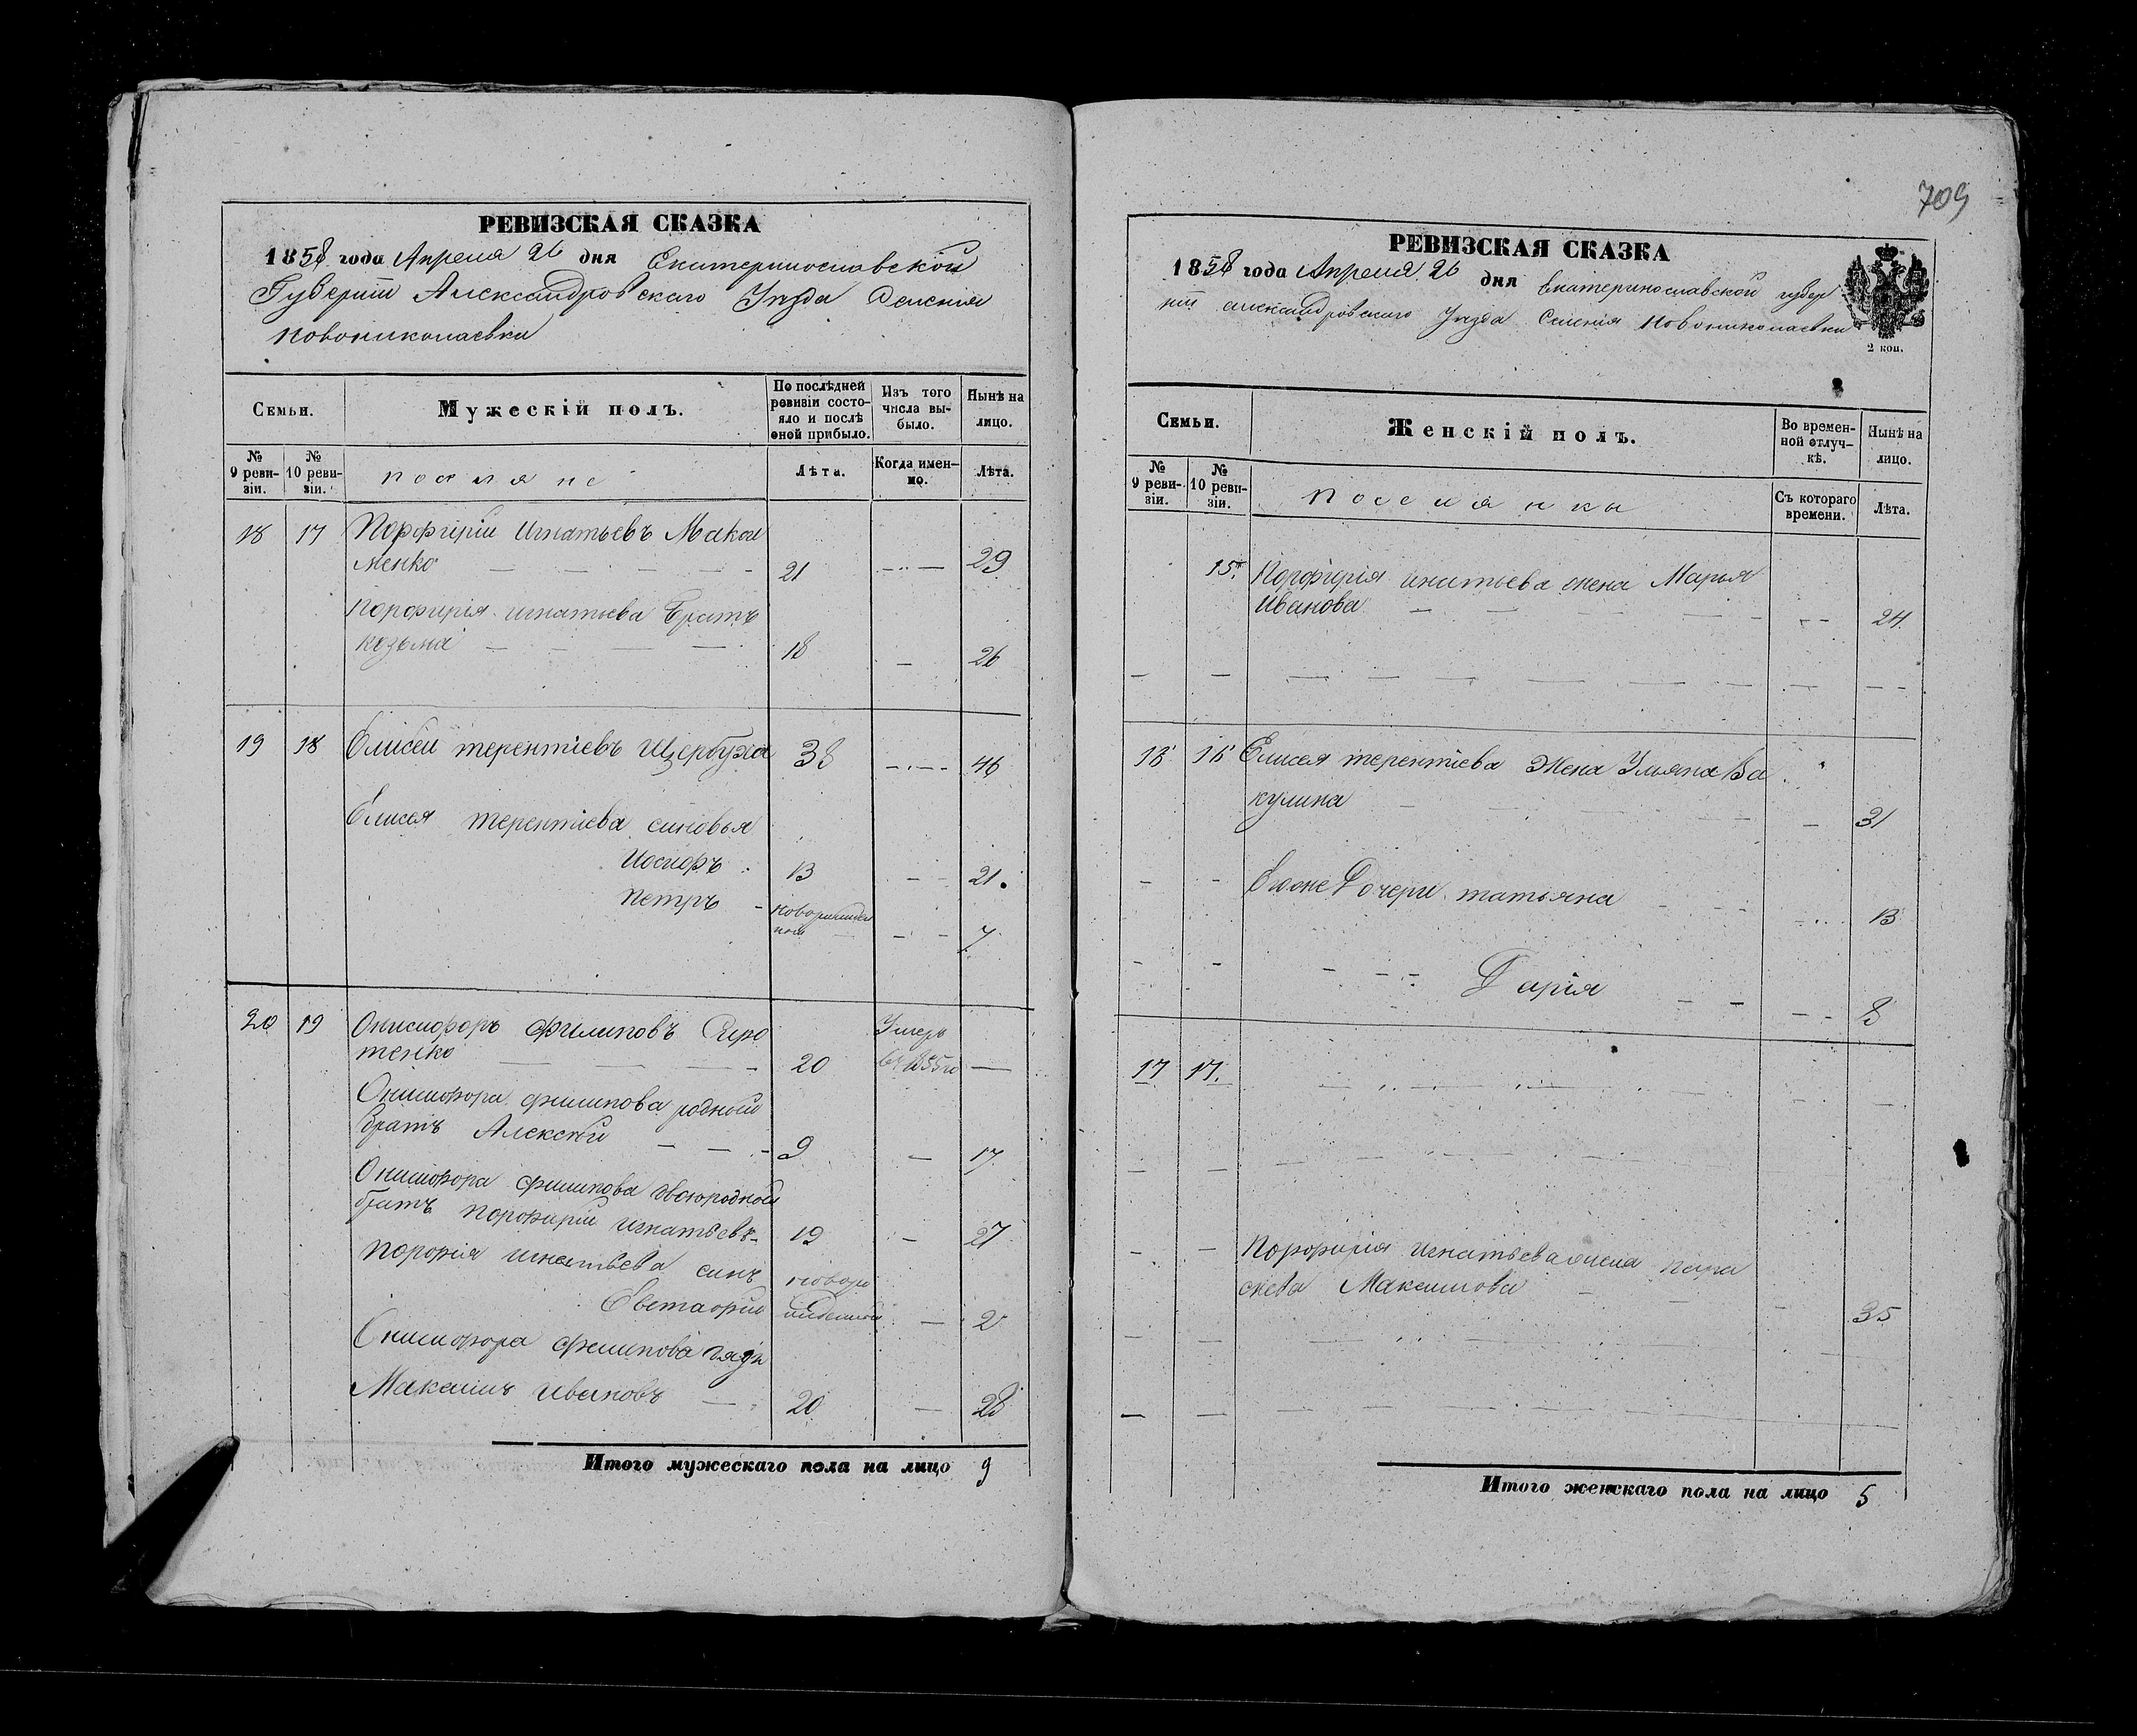 РЕВИЗСКАЯ СКАЗКА
1858 года Апреля 26 дня Екатеринославской
Губерніи Александровскаго Уезда Селенія
Новониколаевки
Семьи.
Мужескій полъ.
По послѣдней ревизіи состояло и послѣ оной прибыло.
Изъ того числа выбыло.
Нынѣ на лицо.
№ 9 ревизіи.
№ 10 ревизіи.
поселяне
Лѣта.
Когда именно.
Лѣта.
18 17 Порфирій Игнатьевъ
менко — — — — 21 — — 29
Порфирія Игнатьева Братъ
козьма — — — — 18 — 26
19 18 Елисей терентіевъ Щербуха 38 — — 46
Елисея терентіева синовья
Иосифъ 13 — — 21
Петръ - — — 7
20 19 Онисифоръ Филиповъ Сиро Умеръ
тенко — — — 20 въ 1855 го —
Онисифора филипова родной
братъ Алексѣй — — - 9 — 17
Онисифора филипова двоюродной
братъ порфирій игнатьевъ 19 — 27
порфирія игнатьева синъ новоро
жденной — 2
Онисифора филипова дядя
Максимъ Ивановъ — 20 — 28
Итого мужескаго пола на лицо 9
709
РЕВИЗСКАЯ СКАЗКА
1858 года Апреля 26 дня Екатеринославской губер
ніи александровскаго Уезда Селенія Новониколаевки
2 коп.
Семьи.
Женскій полъ.
Во временной отлучкѣ.
Нынѣ на лицо.
№ 9 ревизіи.
№ 10 ревизіи.
поселянки
Съ котораго времени.
Лѣта.
15. Порфирія игнатьева жена Марья
Иванова — — — — - - - 24
16 Елисея терентіева Жена Ульяна Ва
кулина — — — 31
- - Егоже Дочери татьяна — — 13
- - Дарія — — 8
17 17.
- - Порфирія игнатьева жена пара
скева Максимова — — - 35
Итого женскаго пола на лицо 5